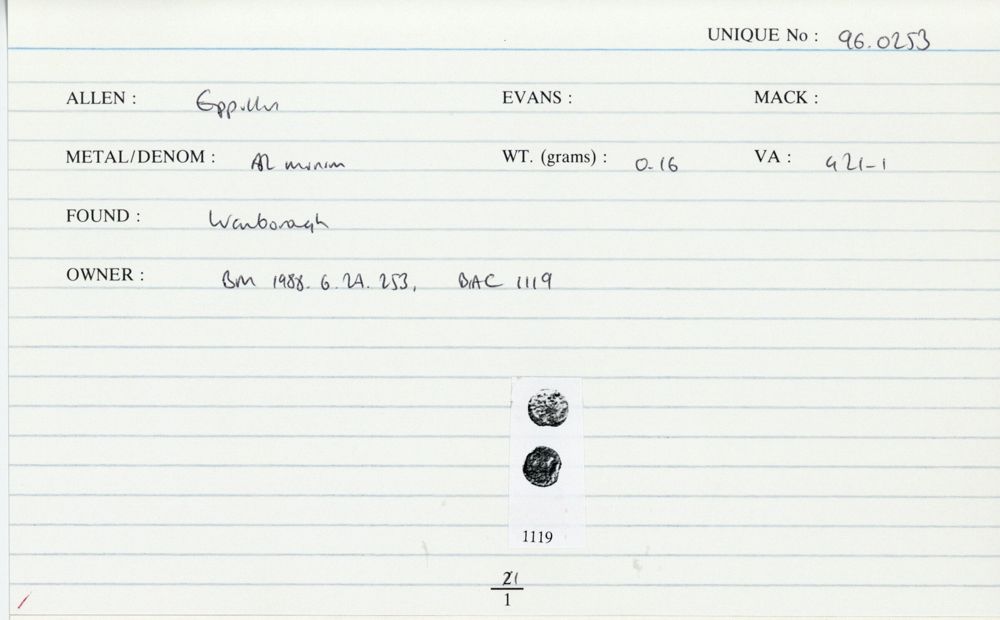 UNIQUE No : 96.0253
ALLEN : Eppillus EVANS : MACK :
METAL/DENOM : AR minim WT. (grams) : 0.16 VA : 421-1
FOUND : Wanborough
OWNER : BM 1988. 6. 24. 253, BMC 1119
1119
21
1